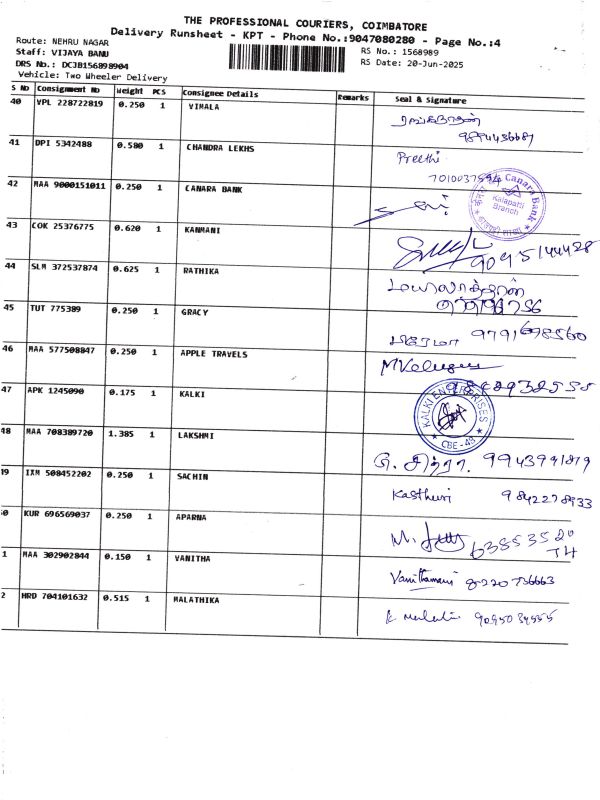 THE PROFESSIONAL COURIERS, COIMBATORE
Delivery Runsheet - KPT - Phone No.:9047080280 - Page No.:4
Route: NEHRU NAGAR
RS No.: 1568989
Staff: VIJAYA BANU
RS Date: 20-Jun-2025
DRS No.: DCJB156898904
Vehicle: Two Wheeler Delivery
S No Consignment No Weight PCS Consignee Details Remarks Seal & Signature
40 VPL 228722819 0.250 1 VIMALA
9894436687
41 DPI 5342488 0.580 1 CHANDRA LEKHS
Preethi
7010037594
42 MAA 9000151011 0.250 1 CANARA BANK
Canara Bank
Kalapatti
Branch
43 COK 25376775 0.620 1 KANMANI
9095144428
44 SLM 372537874 0.625 1 RATHIKA
45 TUT 775389 0.250 1 GRACY
பிரேமா 9791698560
46 MAA 577508847 0.250 1 APPLE TRAVELS
47 APK 1245090 0.175 1 KALKI
KALKI ENTERPRISES
CBE-48
48 MAA 708389720 1.385 1 LAKSHMI
G. சித்ரா. 9943991879
49 IXM 508452202 0.250 1 SACHIN
Kasthuri 9842278933
0 KUR 696569037 0.250 1 APARNA
6385352074
1 MAA 302902844 0.150 1 VANITHA
Vanithamani 8220736663
2 HRD 704101632 0.515 1 MALATHIKA
K Malathi 9095034555